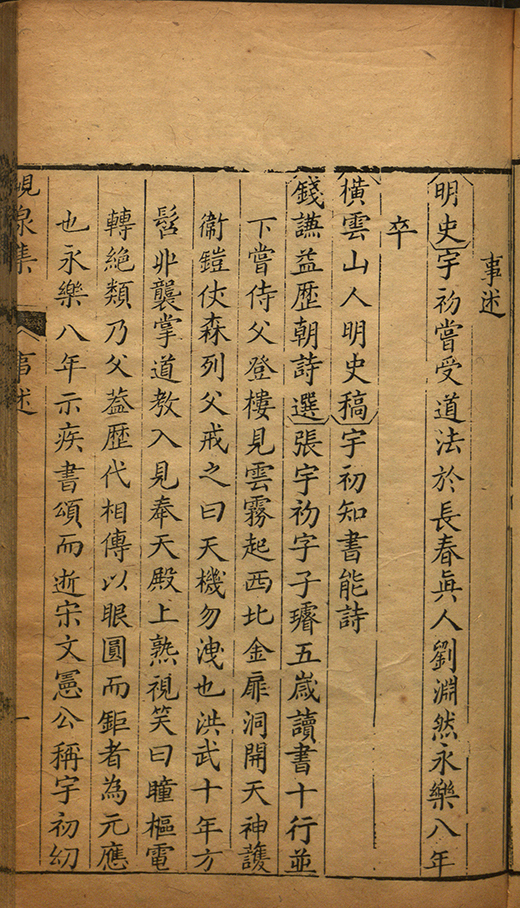 事述
明史宇初嘗受道法於長春眞人劉淵然永樂八年
卒
橫雲山人明史稿宇初知書能詩
錢謙益歷朝詩選張宇初字子璿五歲讀書十行並
下嘗侍父登樓見雲霧起西北金扉洞開天神護
衞鎧仗森列父戒之曰天機勿洩也洪武十年方
髫丱襲掌道教入見奉天殿上熟視笑曰瞳樞電
轉絕類乃父葢歷代相傳以眼圓而鉅者為元應
也永樂八年示疾書頌而逝宋文憲公稱宇初幼
峴泉集
事述
一